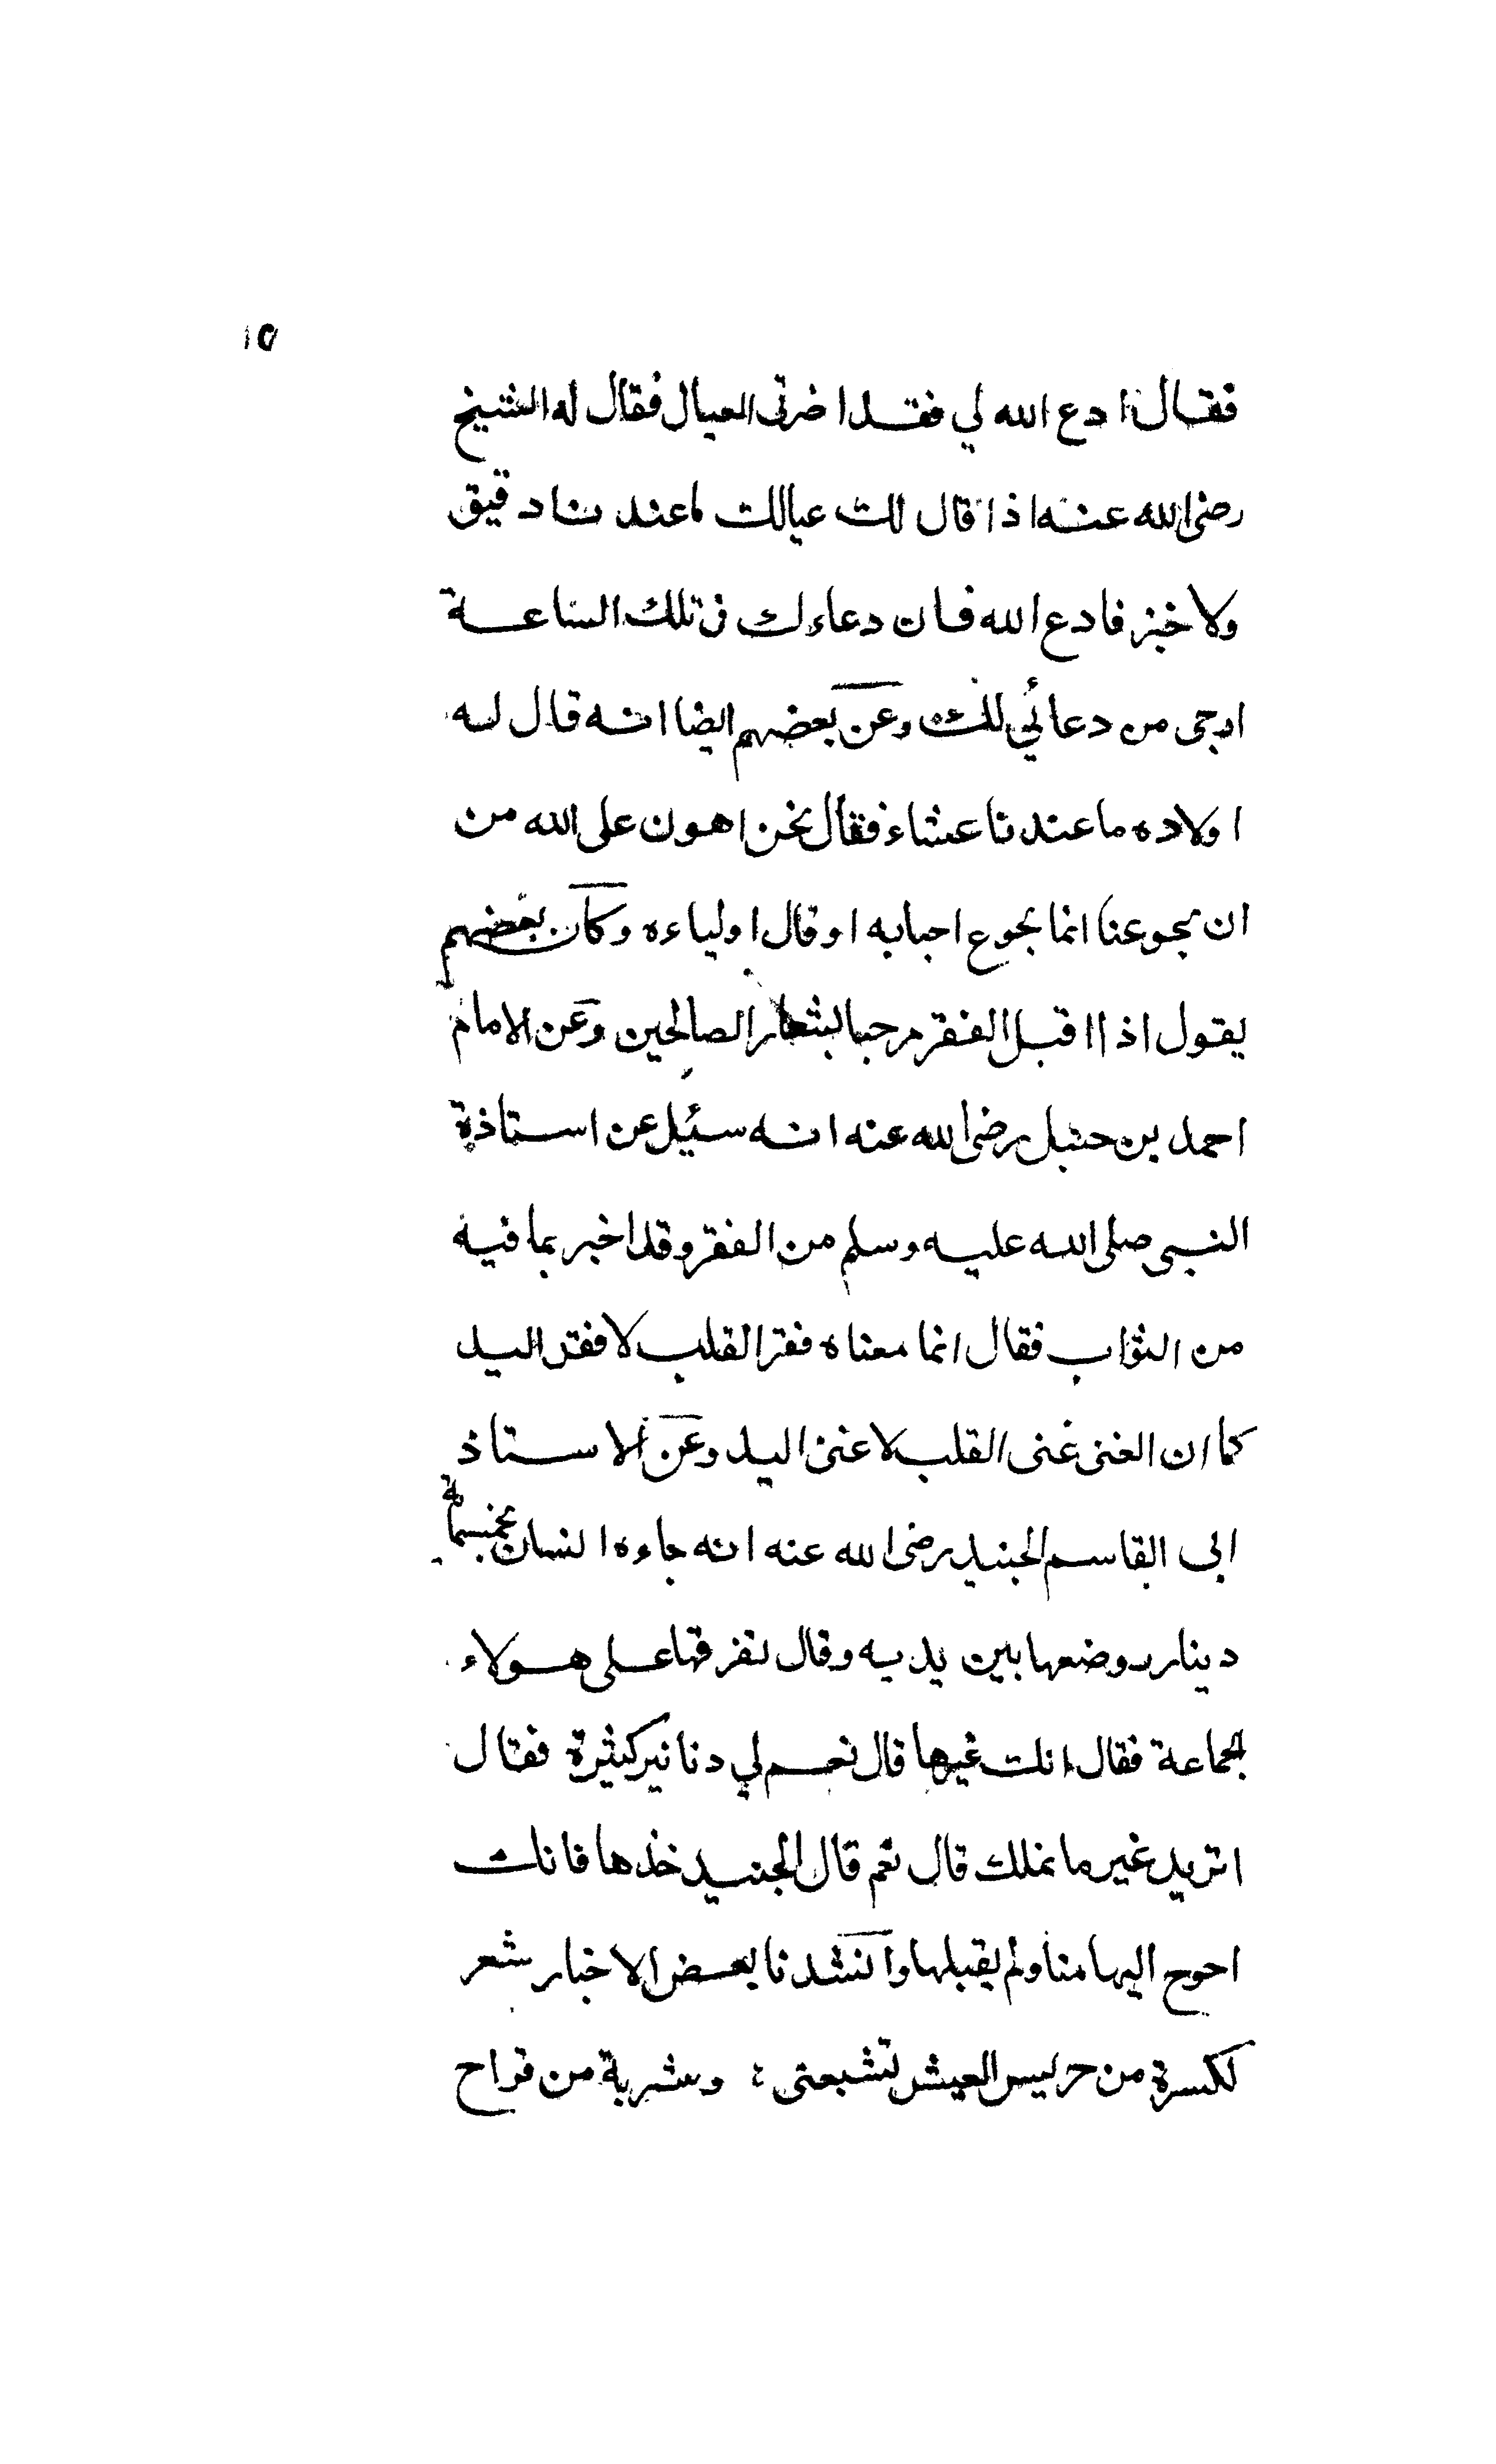 ١٥
فقال ادع الله لي فقد اضرني العيال فقال له الشيخ
رضى الله عنه اذا قال لك عيالك ما عندنا دقيق
ولا خبز فادع الله فان دعاءك في تلك الساعة
ارجى من دعائي لك وعن بعضهم ايضا انه قال له
اولاده ما عندنا عشاء فقال نحن اهون على الله من
ان يجوعنا انما يجوع احبابه او قال اولياءه وكان بعضهم
يقول اذا اقبل الفقر مرحبا بشعار الصالحين وعن الامام
احمد بن حنبل رضى الله عنه انه سئيل عن استاذة
النبي صلى الله عليه وسلم من الفقر وقد اخبر بما فيه
من الثواب فقال انما معناه فقر القلب لا فقر اليد
كما ان الغنى غنى القلب لا غنى اليد وعن الاستاذ
ابي القاسم الجنيد رضى الله عنه انه جاءه انسان بخمسماية
دينار وضعها بين يديه وقال تفرقها على هولاء
الجماعة فقال الك غيرها قال نعم لي دنانير كثيرة فقال
اتريد غير ما تملك قال نعم قال الجنيد خذها فانك
احوج اليها منا ولم يقبلها وانشدنا بعض الاخيار شعر
لكسرة من جريش العيش تشبعني ؛ وشربة من قراح